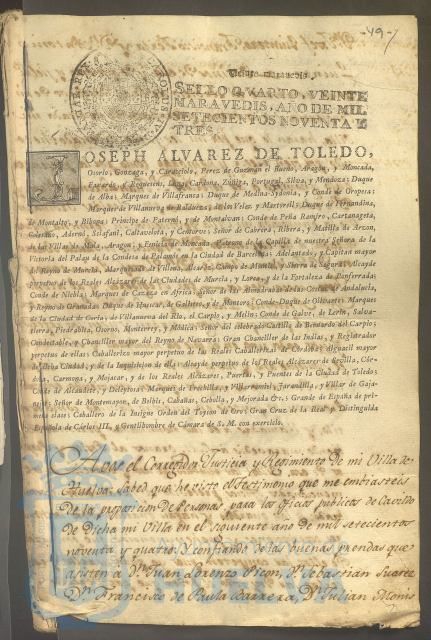 -49-
Veinte maravedis.
SELLO QVARTO, VEINTE
MARAVEDIS, AÑO DE MIL
SETECIENTOS NOVENTA Y
TRES.
JOSEPH ALVAREZ DE TOLEDO,
Osorio, Gonzaga, y Caracciolo, Perez de Guzman el Bueno, Aragon, y Moncada,
Faxardo, y Requesens, Luna, Cardona, Zúñiga, Portugal, Silva, y Mendoza: Duque
de Alba: Marques de Villafranca: Duque de Medina-Sydonia, y Conde de Oropesa:
Marques de Villanueva de Baldueza; de los Velez, y Martorell: Duque de Fernandina,
de Montalto, y Bibona: Principe de Paternò, y de Montalvan: Conde de Peña Ramiro, Cartanageta,
Colesano, Adernò, Sclafani, Caltavelota, y Centorve: Señor de Cabrera, Ribera, y Matilla de Arzon,
de las Villas de Mula, Aragon, y Emicia de Moncada: Patrono de la Capilla de nuestra Señora de la
Victoria del Palau de la Condesa de Palamós en la Ciudad de Barcelona: Adelantado, y Capitan mayor
del Reyno de Murcia, Marquesado de Villena, Alcaráz, Campo de Montiel, y Sierra de Segura: Alcayde
perpetuo de los Reales Alcázares de las Ciudades de Murcia, y Lorca, y de la Fortaleza de Ponferrada:
Conde de Niebla: Marques de Cazaza en Africa: Señor de las Almadrabas de las Costas de Andalucía,
y Reyno de Granada: Duque de Huescar, de Galisteo, y de Montoro: Conde-Duque de Olivares: Marques
de la Ciudad de Coria, de Villanueva del Rio, el Carpio, y Eliche: Conde de Galve, de Lerin, Salva-
tierra, Piedrahita, Osorno, Monterrey, y Módica: Señor del celebrado Castillo de Bernardo del Carpio:
Condestable, y Chanciller mayor del Reyno de Navarra: Gran Chanciller de las Indias, y Registrador
perpetuo de ellas: Caballerizo mayor perpetuo de las Reales Caballerizas de Córdoba: Alguacil mayor
de dicha Ciudad, y de la Inquisicion de ella: Alcayde perpetuo de los Reales Alcázares de Sevilla, Cór-
doba, Carmona, y Mojacar, y de los Reales Alcázares, Puertas, y Puentes de la Ciudad de Toledo:
Conde de Alcaudete, y Deleytosa: Marques de Frechilla, y Villarramiel, Jarandilla, y Villar de Gaja-
nejos: Señor de Montemayor, de Belbis, Cabañas, Cebolla, y Mejorada &c.: Grande de España de pri-
mera clase: Caballero de la Insigne Orden del Toyson de Oro: Gran Cruz de la Real y Distinguida
Española de Cárlos III, y Gentilhombre de Cámara de S. M. con exercicio.
A vos el Corregidor, Justicia y Regimiento de mi Villa de
Huelva: sabed que he visto el testimonio que me embiasteis
de la proposicion de Personas, para los oficios publicos de Cavildo
de Dicha mi Villa en el siguiente año de mil setecientos
noventa y quatro, y confiando de las buenas prendas que
asisten a Dn. Juan Lorenzo Picon, Dn. Sebastian Suarez
Dn. Francisco de Paula Barrera, Dn. Julian Monis